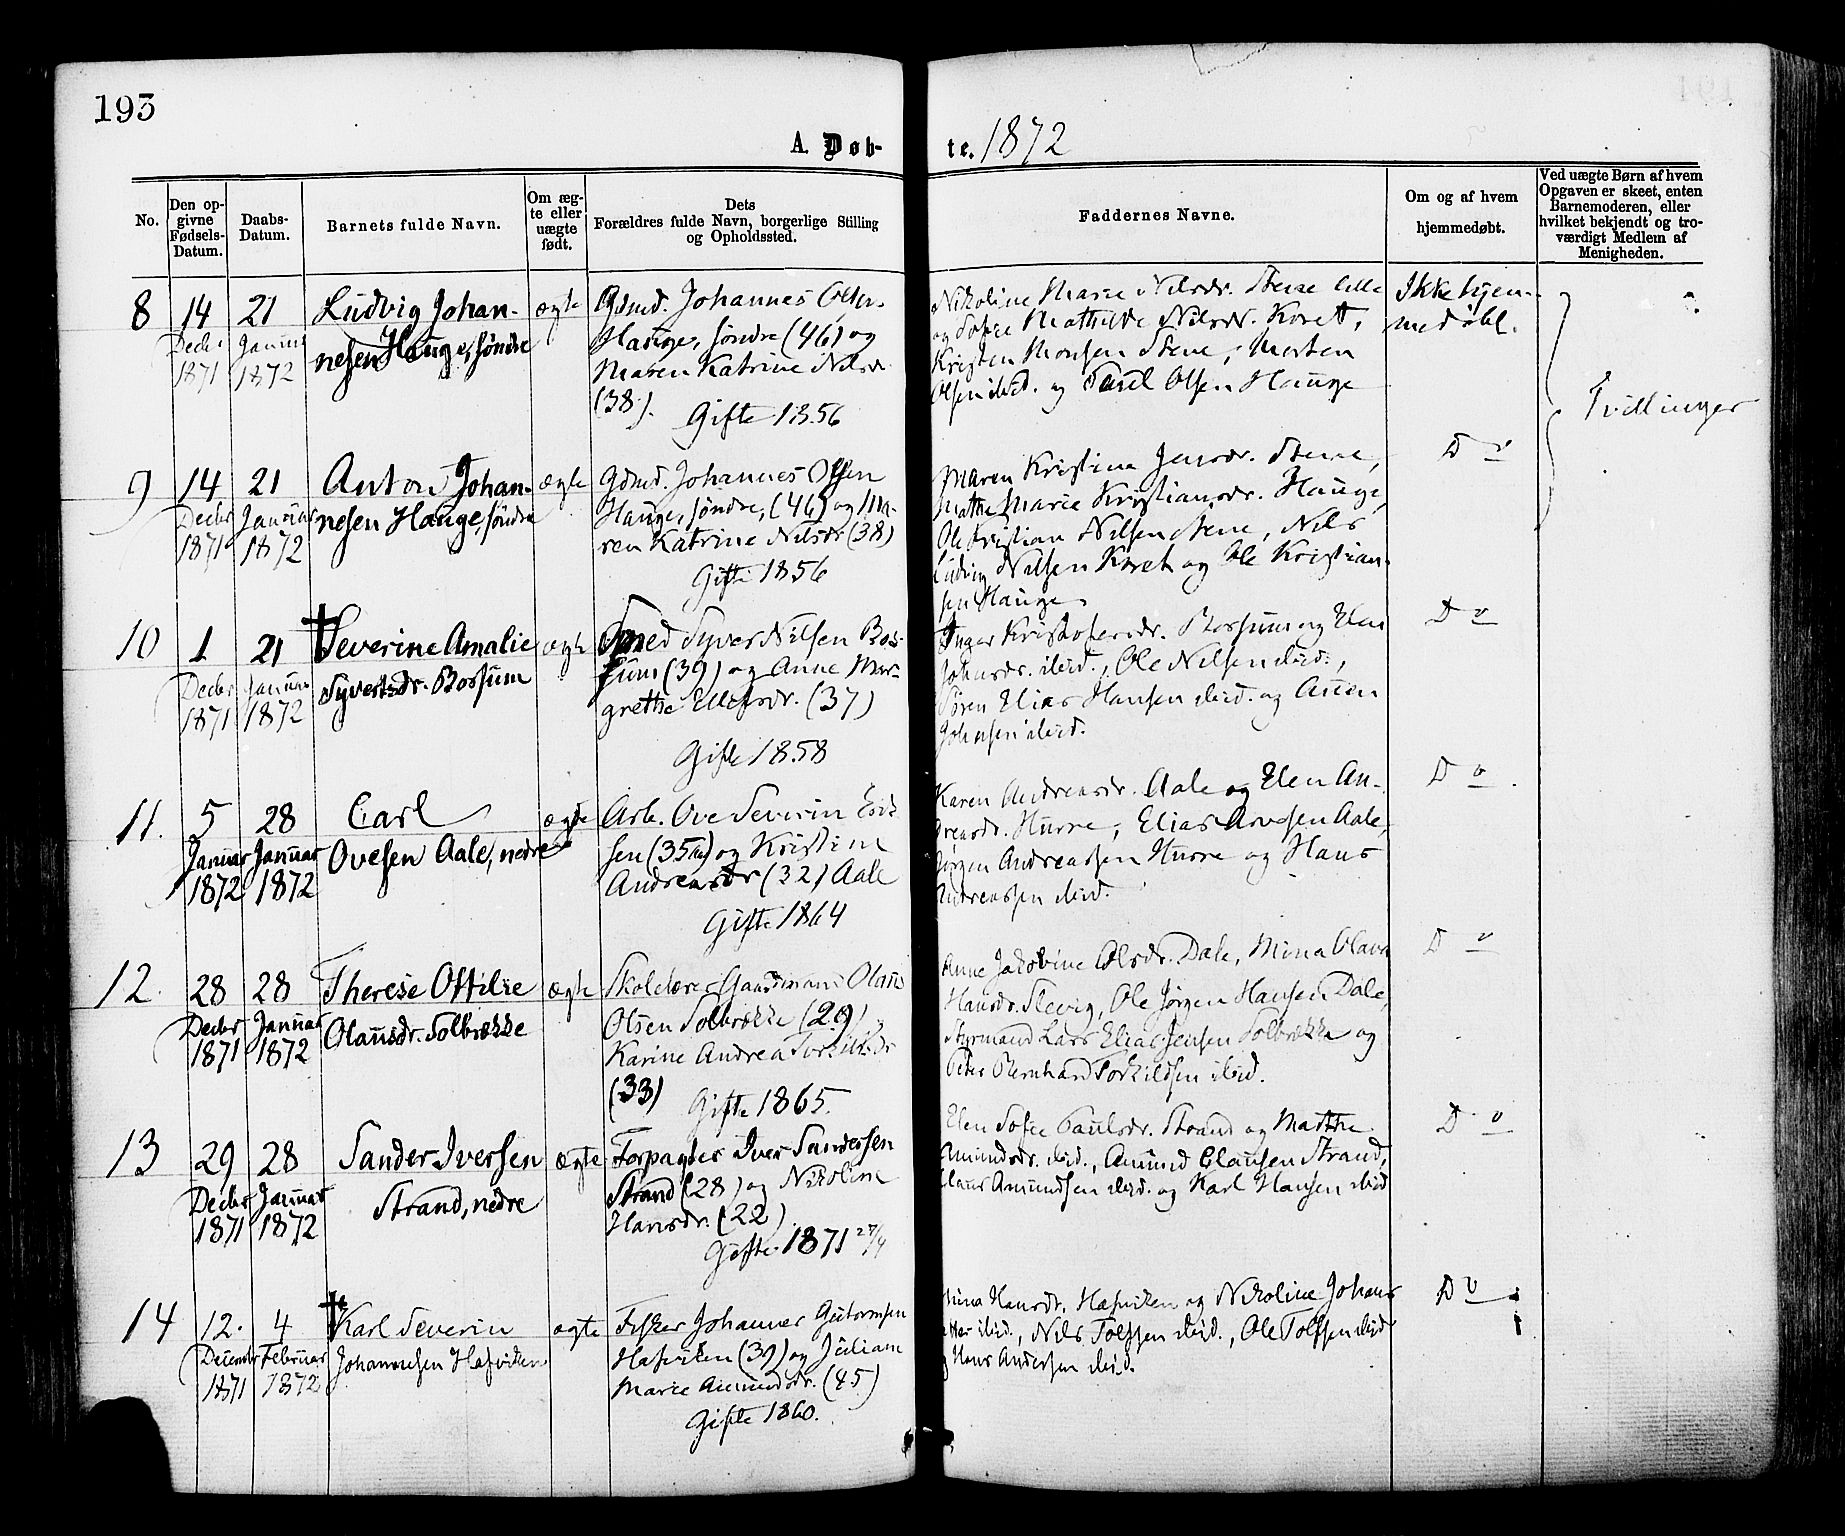 193
A. Døb-
te. 1872
No.
Den op-
givne
Fødsels-
Datum.
Daabs-
Datum.
Barnets fulde Navn.
Om æg-
te eller
uægte
født.
Dets
Forældres fulde Navn, borgerlige Stilling
og Opholdssted.
Faddernes Navne.
Om og af hvem
hjemmedøbt.
Ved uægte Børn af hvem
Opgaven er skeet, enten
Barnemoderen, eller
hvilket bekjendt og tro-
værdigt Medlem af
Menigheden.
8
14
Decbr
1871
21
Januar
1872
Ludvig Johan-
nesen Hauge, søndre
ægte
Gdmd. Johannes Olsen
Hauge, søndre (46) og
Maren Katrine Nilsdr
(38).
Gifte 1856
Nikoline Marie Nilsdr. Stene
og Sofie Mathilde Nilsdr. Koret,
Kristen Monsen Stene, Morten
Olsen ibid. og Paul Olsen Hauge
Ikke hjem-
medøbt.
Tvillinger
9
14
Decbr
1871
21
Januar
1872
Anton Johan-
nesen Hauge, søndre
ægte
Gdmd. Johannes Olsen
Hauge, søndre, (46) og Ma-
ren Katrine Nilsdr (38)
Gifte 1856
Maren Kristine Jensdr. Stene,
Mathe Marie Kristiansdr. Hauge,
Ole Kristian Nilsen Stene, Nils
Ludvig Nilsen Koret og Ole Kristian-
sen Hauge.
D o
10
1
Decbr
1871
21
Januar
1872
† Severine Amalie
Syvertsdr. Bossum
ægte
Smed Syver Nilsen Bos-
sum (39) og Anne Mar-
grethe Ellefsdr. (37)
Gifte 1858
Inger Kristofersdr. Bossum og Elen
Johnsdr. ibid., Ole Nilsen ibid.,
Søren Elias Hansen ibid. og
Johnsen ibid.
D o
11.
5
Januar
1872
28
Januar
1872
Carl
Ovesen Aale, nedre
ægte
Arb. Ove Severin
sen (35) og Kristine
Andreasdr (32) Aale
Gifte 1864
Karen Andreasdr. Aale og Elen An-
dreasdr. Hurre, Elias Arvesen Aale,
Jørgen Andreassen Hurre og Hans
Andreassen ibid.
D o.
12.
28
Decbr
1871
28
Januar
1872
Therese Ottilie
Olausdr. Solbrække
ægte
Skolelærer Gaardmand Olaus
Olsen Solbrække (29)
Karine Andrea Torkildsdr
(33)
Gifte 1865.
Anne Jakobine Olsdr. Dale, Mina Olava
Hansdr. Slevig, Ole Jørgen Hansen Dale,
Styrmand Lars Elias Jensen Solbrække og
Peder Bernhard Torkildsen ibid.
D o
13
29
Decbr
1871
28
Januar
1872
Sander Iversen
Strand, nedre
ægte
Forpagter Iver Sandersen
Strand (28) og Nikoline
Hansdr. (22)
Gifte 1871 27/4
Elen Sofie Paulsdr. Strand og Mathe
Amundsdr. ibid., Amund Clausen Strand,
Claus Amundsen ibid. og Karl Hansen ibid
D o
14
12.
December
1871
4
Februar
1872
† Karl Severin
Johannesen Hafviken
ægte
Fisker Johannes Gutormsen
Hafviken (39) og Juliane
Marie Amundsdr. (45)
Gifte 1860.
Mina Hansdr. Hafviken og Nikoline Johans
datter ibid., Nils Tolfsen ibid., Ole Tolfsen ibid
og Hans Andersen ibid.
D o